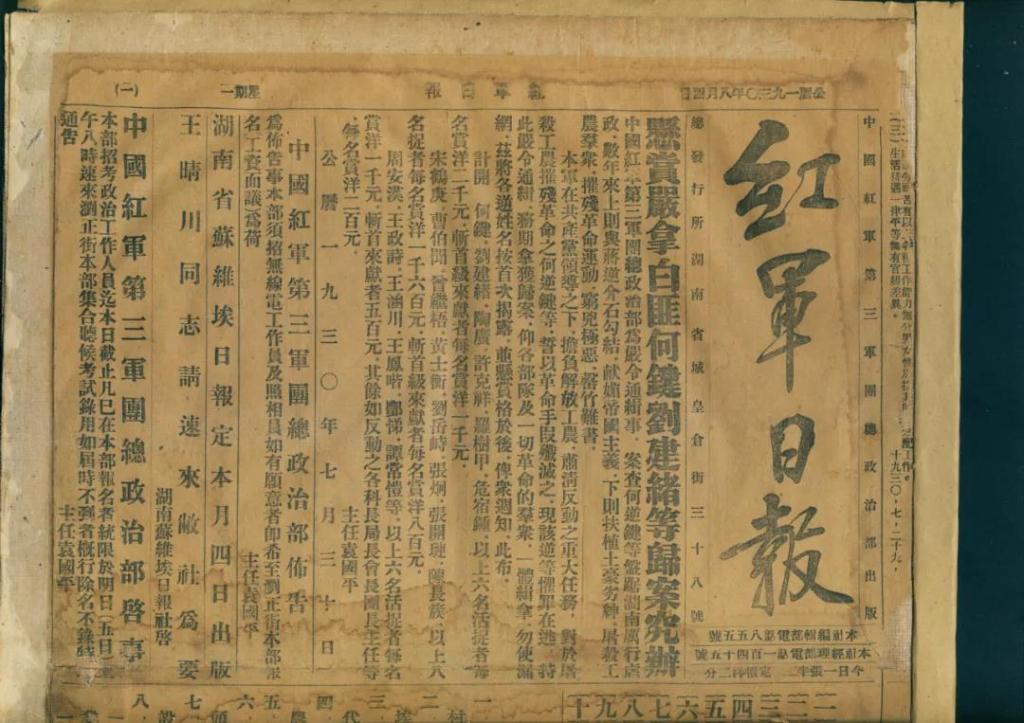 公曆一九三〇年八月四日
紅軍日報
星期一
(一)
十九三〇,七,二十九,
(三)生活待遇一律平等無有官級差異。
紅軍日報
中國紅軍第三軍團總政治部出版
本社編輯部電話八五五號
本社經理部電話一百四十五號
今日一張半
定價洋二分
總發行所湖南省城皇倉街三十八號
懸賞嚴拿白匪何鍵劉建緒等歸案究辦
中國紅軍第三軍團總政治部為嚴令通緝事,案查何逆鍵等盤踞湖南厲行虐
政,數年來上則與蔣逆介石勾結,獻媚帝國主義,下則扶植土豪劣紳,屠殺工
農羣衆,摧殘革命運動,窮兇極惡,罄竹難書。
本軍在共產黨領導之下,擔負解放工農,肅清反動之重大任務,對於屠
殺工農摧殘革命之何逆鍵等,誓以革命手段殲滅之,現該逆等懼罪在逃,特
此嚴令通緝,務期拿獲歸案,仰各部隊及一切革命的羣衆,一體緝拿,勿使漏
網,茲將各逆姓名按首次揭露,並懸賞格於後,俾衆週知,此布。
計開 何鍵,劉建緒,陶廣,許克祥,羅樹甲,危宿鍾,以上六名活捉者每
名賞洋二千元,斬首級來獻者每名賞洋一千元。
宋鶴庚,曹伯聞,曾繼梧,黃士衡,劉岳峙,張炯,張開璉,陳長簇,以上八
名捉者每名賞洋一千六百元,斬首級來獻者每名賞洋八百元。
周安漢,王政詩,王涵川,王鳳喈,鄷悌,譚常愷等,以上六名活捉者每名
賞洋一千元,斬首來獻者五百元,其餘如反動之各科長局長會長團長主任等
,每名賞洋二百元。
主任袁國平
公曆一九三〇年七月三十日
中國紅軍第三軍團總政治部佈告
為佈告事本部須招無線電工作員及照相員如有願意者卽希至瀏正街本部報
名工資面議為荷
主任袁國平
湖南省蘇維埃日報定本月四日出版
王晴川同志請速來敝社為要
湖南蘇維埃日報社啓
中國紅軍第三軍團總政治部啓事
本部招考政治工作人員迄本日截止凡已在本部報名者統限於明日(五日)上
午八時速來瀏正街本部集合聽候考試錄用如屆時不到者概行除名不錄特此
通告
主任袁國平